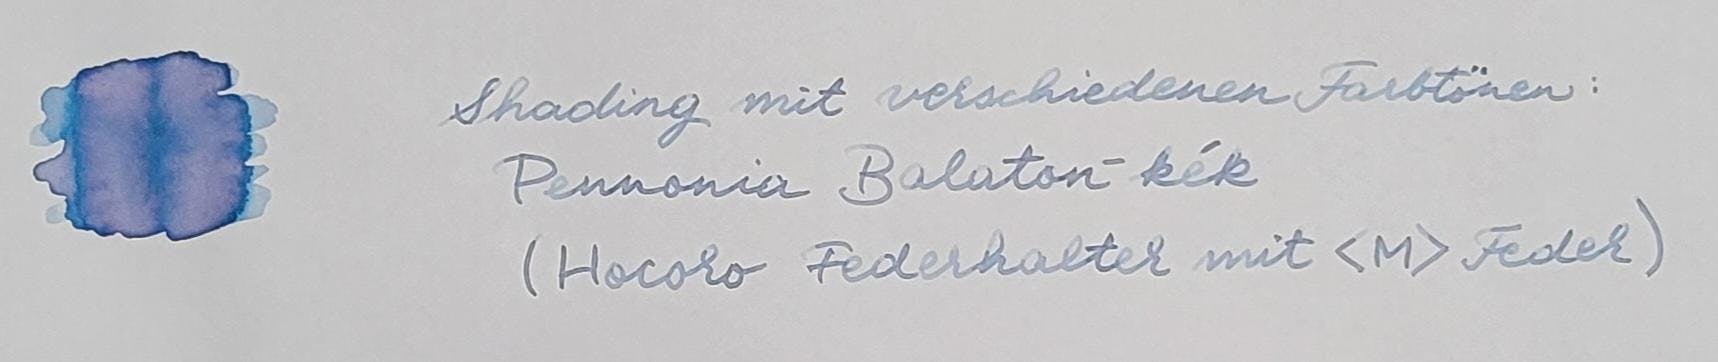 Shading mit verschiedenen Farbtönen:
Pennonia Balaton-kék
(Hocoro Federhalter mit <M> Feder)